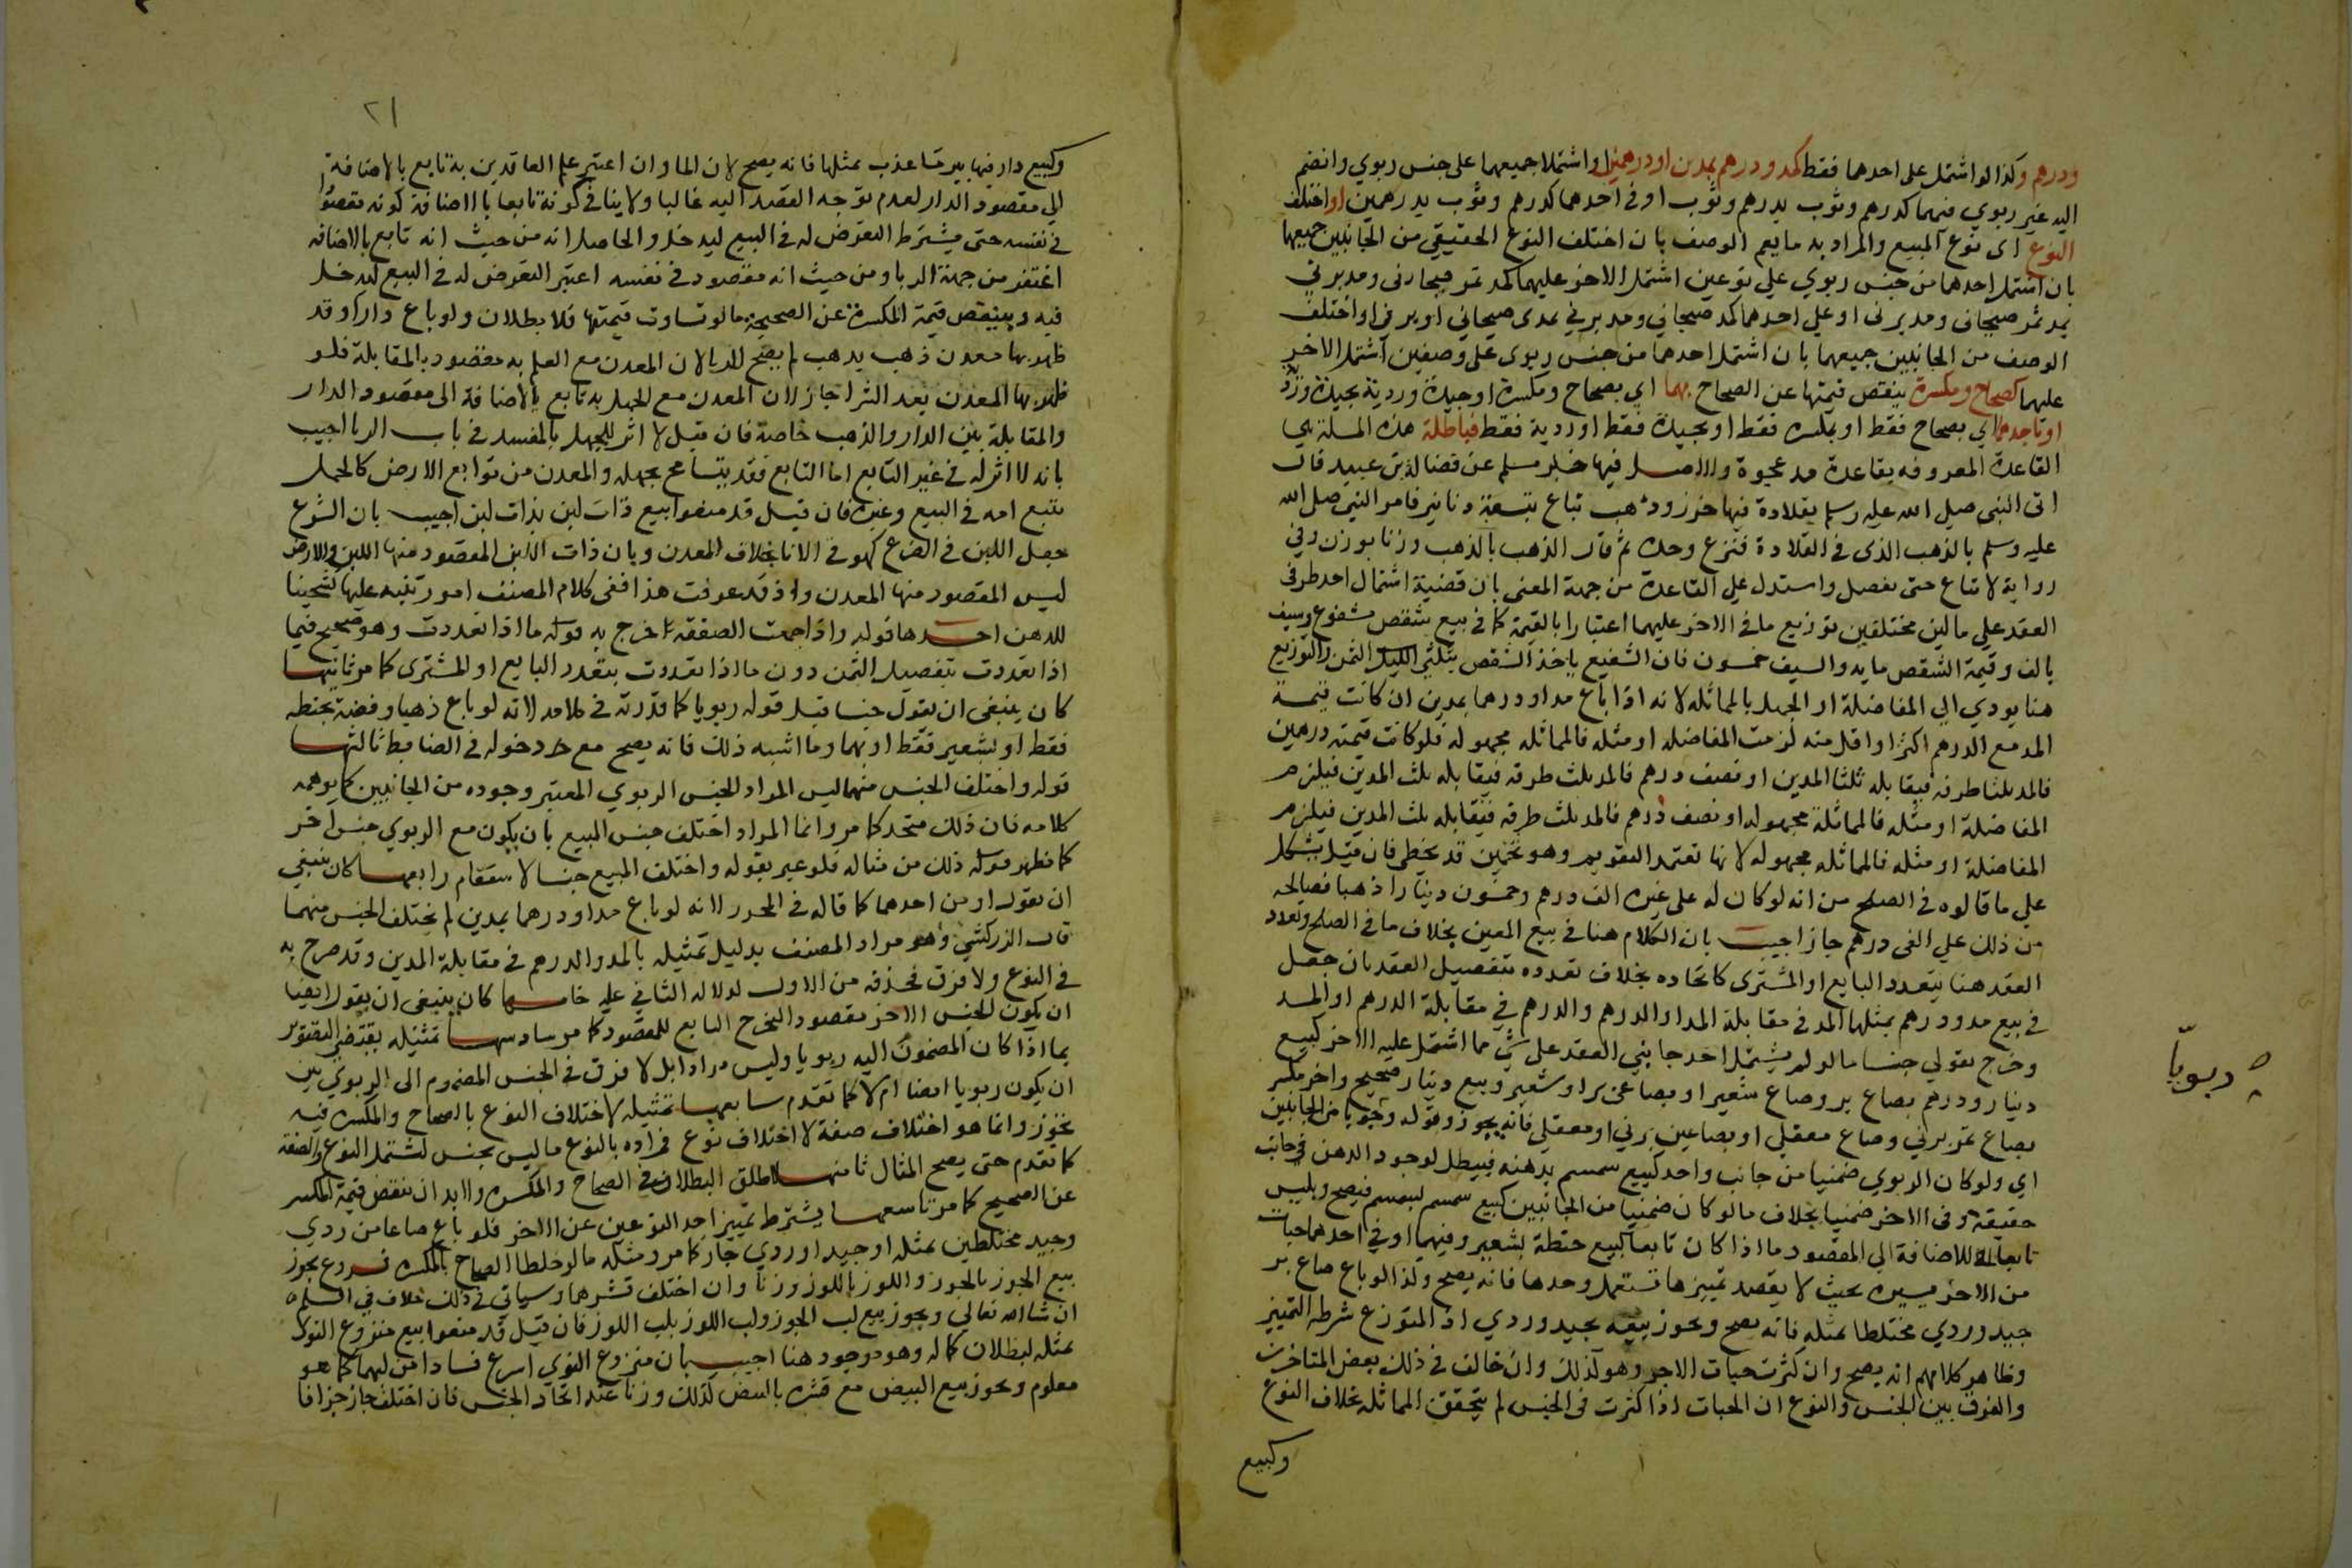 ودرهم وكذا لو اشتمل على احدهما فقط كمد ودرهم بمدين او درهمين او اشتملا جميعهما على جنس ربوي وانضم
اليه غير ربوي فيهما كدرهم وثوب بدرهم وثوب او في احدهما كدرهم وثوب بدرهمين او اختلف
النوع اى نوع المبيع والمراد به ما يعم الوصف بان اختلف النوع الحقيقي من الجانبين جميعها
بان اشتمل احدهما من جنس ربوي على نوعين اشتمل الاخر عليهما كمد تمر صيحانى ومد برني
بمد تمر صيحانى ومد برنى او على احدهما كمد صيحاني ومد برني بمدى صيحاني او برني او اختلف
الوصف من الجانبين جميعهما بان اشتمل احدهما من جنس ربوى على وصفين اشتمل الاخر
عليهما كصحاح ومكسرة ينقص قيمتها عن الصحاح بهما اي بصحاح ومكسرة او جيدة وردية بجيدة وردية
او باحدهما اي بصحاح فقط او بمكسرة فقط او بجيدة فقط او ردية فقط فباطلة هذه المسلة هي
القاعدة المعروفة بقاعدة مد عجوة والاصل فيها خبر مسلم عن فضالة بن عبيد قال
اتى النبى صلى الله عليه وسلم بقلادة فيها خرز وذهب تباع بتسعة دنانير فامر النبي صلى الله
عليه وسلم بالذهب الذى فى القلادة فنزع وحده ثم قال الذهب بالذهب وزنا بوزن وفي
رواية لا تباع حتى تفصل واستدل على القاعدة من جهة المعنى بان قضية اشتمال احد طرفى
العقد على مالين مختلفين توزيع ما فى الاخر عليهما اعتبارا بالقيمة كما فى بيع شقص مشفوع وسيف
بالف وقيمة الشقص ماية والسيف خمسون فان الشفيع ياخذ الشقص بثلثي الثمن والتوزيع
هنا يودي الى المفاضلة او الجهل بالمماثلة لانه اذا باع مدا ودرهما بمدين ان كانت قيمة
المد مع الدرهم اكثر او اقل منه لزمت المفاضله او مثله فالمماثله مجهولة فلو كانت قيمته درهمين
فالمد ثلثا طرفه فيقابله ثلثا المدين او نصف درهم فالمد ثلث طرفه فيقابله ثلث المدين فيلزم
المفاضلة او مثله فالمماثلة مجهوله او نصف درهم فالمد ثلث طرفه فيقابله ثلث المدين فيلزم
المفاضلة او مثله فالمماثله مجهوله لانها تعتمد التقويم وهو تخمين قد يخطى فان قيل يشكل
على ما قالوه فى الصلح من انه لو كان له على غيره الف درهم وخمسون دينارا ذهبا فصالحه
من ذلك على الفى درهم جاز اجيب بان الكلام هنا فى بيع المعين بخلاف ما فى الصلح وتعدد
العقد هنا بتعدد البايع او المشترى كاتحاده بخلاف تعدده بتفصيل العقد بان جعل
في بيع مد ودرهم بمثلهما المد فى مقابلة المد او الدرهم والدرهم في مقابلة الدرهم او المد
وخرج بقولي جنسا ما لو لم يشتمل احد جانبي العقد على شي مما اشتمل عليه الاخر كبيع
دينار ودرهم بصاع بر وصاع شعير او بصاعى بر او شعير وبيع دينار صحيح واخر مكسر
بصاع تمر برني وصاع معقلي او بصاعين برني او معقلي فانه يجوز وقوله ربويا من الجانبين
اي ولو كان الربوي ضمنيا من جانب واحد كبيع سمسم بدهنه فيبطل لوجود الدهن في جانب
حقيقة وفى الاخر ضمنيا بخلاف ما لو كان ضمنيا من الجانبين كبيع سمسم بسمسم فيصح وليس
تابعا للاضافة الى المقصود ما اذا كان تابعا كبيع حنطة بشعير وفيهما او في احدهما حبات
من الاخر يسيرة بحيث لا يقصد تمييزها تستعمل وحدها فانه يصح وكذا لو باع صاع بر
جيد وردي مختلطا بمثله فانه يصح ويجوز بيعه بجيد وردي اذ التوزع شرطه التمييز
وظاهر كلامهم انه يصح وان كثرت حبات الاخر وهو كذلك وان خالف فى ذلك بعض المتاخرين
والفرق بين الجنس والنوع ان الحبات اذا كثرت فى الجنس لم تتحقق المماثلة بخلاف النوع
وكبيع
ربويا
٢١
وكبيع دار فيها بير ماء عذب بمثلها فانه يصح لان الما وان اعتبر علم العاقدين به تابع بالاضافة
الى مقصود الدار لعدم توجه القصد اليه غالبا ولا ينافى كونه تابعا بالاضافة كونه مقصودا
فى نفسه حتى يشترط التعرض له فى البيع ليدخل والحاصل انه من حيث انه تابع بالاضافه
اغتفر من جهة الربا ومن حيث انه مقصود فى نفسه اعتبر التعرض له فى البيع ليدخل
فيه وبينقص قيمة المكسرة عن الصحيحة ما لو تساوت قيمتها فلا بطلان ولو باع دارا وقد
ظهر بها معدن ذهب بذهب لم يصح للربا لان المعدن مع العلم به مقصود بالمقابلة فلو
ظهر بها المعدن بعد الشرا جاز لان المعدن مع الجهل به تابع بالاضافة الى مقصود الدار
والمقابلة بين الدار والذهب خاصة فان قيل لا اثر للجهل بالمفسد فى باب الربا اجيب
بانه لا اثر له فى غير التابع اما التابع فقد يتسامح بجهله والمعدن من توابع الارض كالحمل
يتبع امه فى البيع وغيره فان قيل قد منعوا بيع ذات لبن بذات لبن اجيب بان الشرع
جعل اللبن فى الضرع كهو فى الانا بخلاف المعدن وبان ذات اللبن المقصود منها اللبن والارض
ليس المقصود منها المعدن واذ قد عرفت هذا ففى كلام المصنف امور تنبه عليها لشحينا
للدهن احدها قوله واذا جمعت الصفقة اخرج به قوله ما اذا تعددت وهو صحيح فيما
اذا تعددت بتفصيل الثمن دون ما اذا تعددت بتعدد البايع او المشترى كما مر ثانيها
كان ينبغى ان يقول جنسا قبل قوله ربويا كما قدرته فى كلامه لانه لو باع ذهبا وفضة بحنطه
فقط او بشعير فقط او بهما وما اشبه ذلك فانه يصح مع دخوله فى الضابط ثالثها
قوله واختلف الجنس منهما ليس المراد الجنس الربوي المعتبر وجوده من الجانبين كما يوهمه
كلامه فان ذلك متحد كما مر وانما المراد اختلف جنس المبيع بان يكون مع الربوي جنس اخر
كما يظهر قوله ذلك من مثاله فلو عبر بقوله واختلف المبيع جنسا لاستقام رابعها كان ينبغي
ان يقول او من احدهما كما قاله فى المحرر لانه لو باع مدا ودرهما بمدين لم يختلف الجنس منهما
قال الزركشي وهو مراد المصنف بدليل تمثيله بالمد والدرهم فى مقابلة المدين وقد صرح به
فى النوع ولا فرق فحذفه من الاول لدلالة الثاني عليه خامسها كان ينبغى ان يقول ايضا
ان يكون الجنس الاخر مقصود اليخرج التابع للمقصود كما مر سادسها تمثيله يقتضي التصوير
بما اذا كان المضموم اليه ربويا وليس مرادا بل لا فرق فى الجنس المضموم الى الربوي بين
ان يكون ربويا ايضا ام لا كما تقدم سابعها تمثيله لاختلاف النوع بالصحاح والمكسرة فيه
تجوز وانما هو اختلاف صفة لا اختلاف نوع فمراده بالنوع ما ليس بجنس لتشتمل النوع والصفة
كما تقدم حتى يصح المثال ثامنها اطلق البطلان فى الصحاح والمكسرة ولا بد ان تنقص قيمة المكسر
عن الصحيح كما مر تاسعها يشترط تمييز احد النوعين عن الاخر فلو باع صاعا من ردي
وجيد مختلطين بمثله او جيد او ردي جاز كما مر ومثله ما لو خلطا الصحاح بالمكسرة فروع يجوز
بيع الجوز بالجوز واللوز باللوز وزنا وان اختلف قشرهما وسياتي فى ذلك خلاف في السلم
ان شا الله تعالى ويجوز بيع لب الجوز ولب اللوز بلب اللوز فان قيل قد منعوا بيع منزوع النوى
بمثله لبطلان كماله وهو موجود هنا اجيب بان منزوع النوى اسرع فسادا من لبهما كما هو
معلوم ويجوز بيع البيض مع قشره بالبيض كذلك وزنا عند اتحاد الجنس فان اختلف جاز جزافا